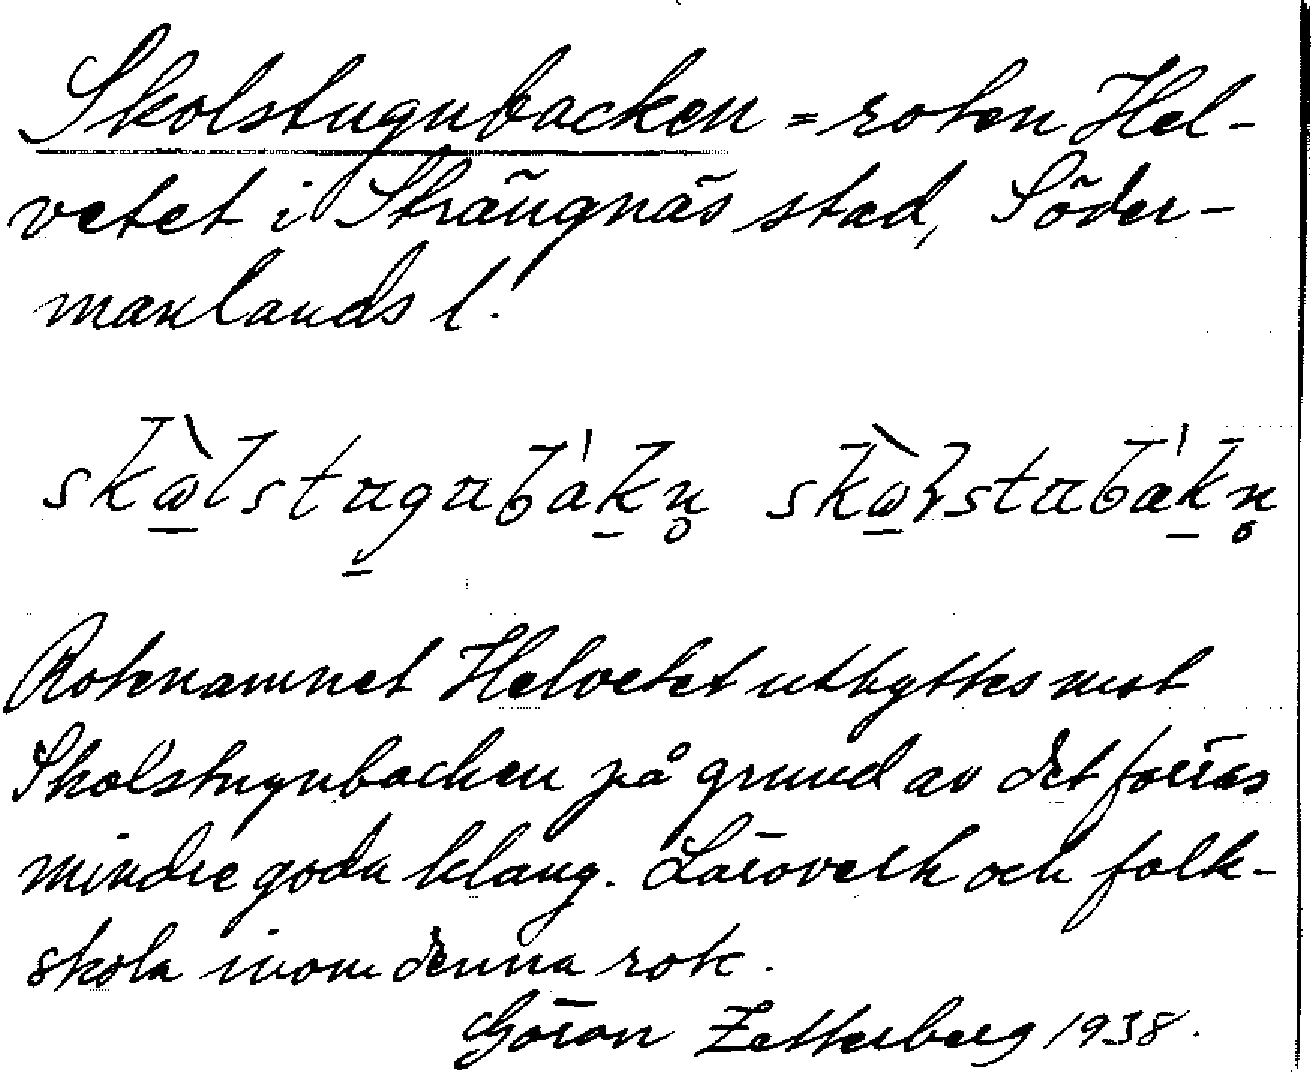 Skolstugubacken = roten Hel-
vetet i Strängnäs stad, Söder-
manlands l.
Rotenamnet Helvetet utbyttes mot
Skolstugubacken på grund av det förras
mindre goda klang. Läroverk och folk-
skola inom denna rote.
Göran Zetterberg 1938.